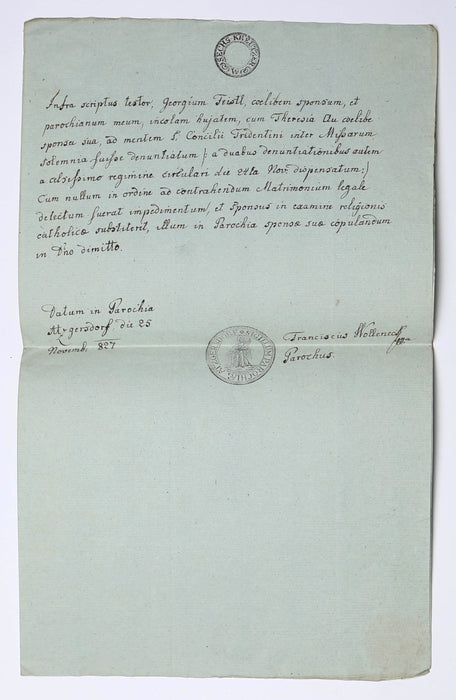 SECHS KREUTZER
Infra scriptus testor, Georgium Feistl, coelibem sponsum, et
parochianum meum, incolam hujatem, cum Theresia Au coelibe
sponsa sua, ad mentem S. Concilii Tridentini inter Missarum
solemnia fuisse denuntiatum /: a duabus denuntiationibus autem
a celsissimo regimine circulari die 24ta Nov. dispensatum :/
Cum nullum in ordine ad contrahendum Matrimonium legale
detectum fuerat impedimentum, et sponsus in examine religionis
catholicæ substiterit, illum in Parochia sponsæ suæ copulandum
in Dno dimitto.
Datum in Parochia
Atzgersdorf die 25
Novemb. 827
Franciscus
Parochus.